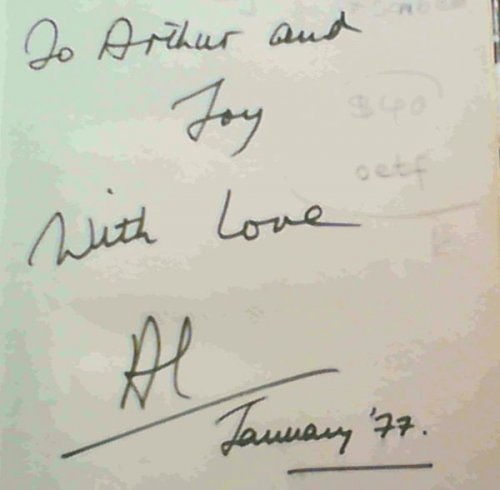 To Arthur and
Joy
With Love
Al
January '77.
$40
oetf